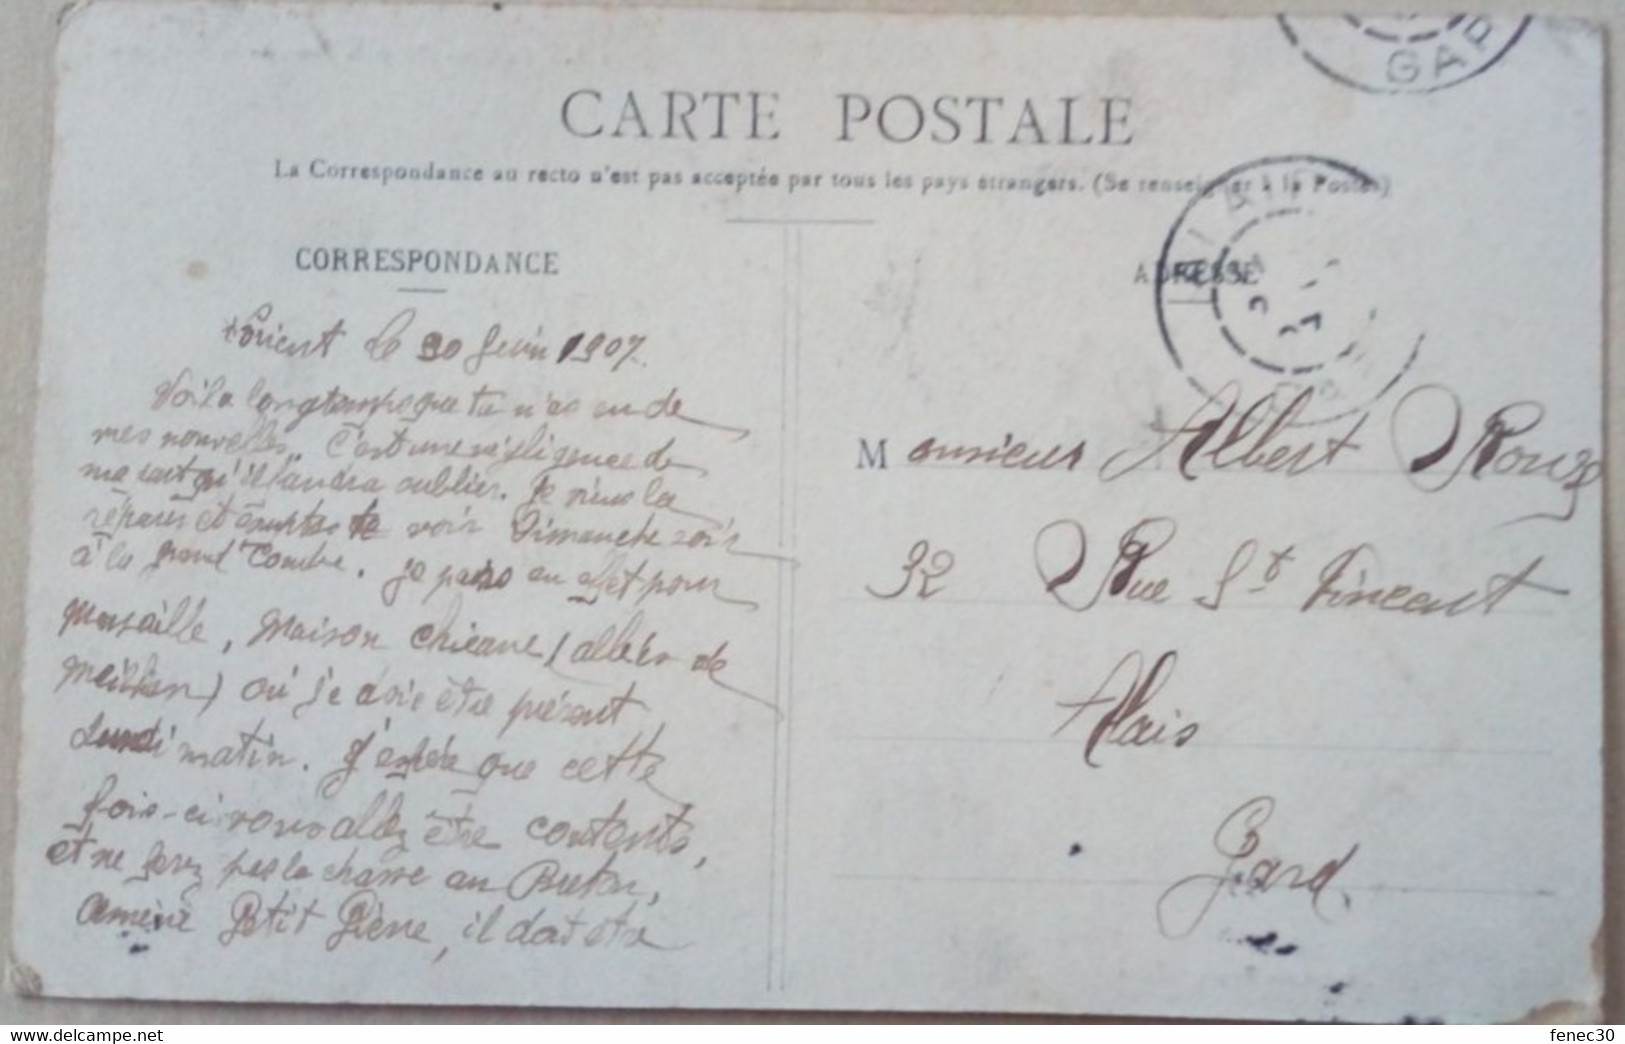 GAP
CARTE POSTALE
La Correspondance au recto n'est pas acceptée par tous les pays étrangers. (Se renseigner à la Poste.)
CORRESPONDANCE
ADRESSE
Lorient le 20 Juin 1907.
Voila longtemps que tu n'as eu de
mes nouvelles. C'est une négligence de
ma part qu'il faudra oublier. Je viens la
réparer et compte te voir Dimanche soir
à la Grand'Combe. Je passe en effet pour
Marseille, Maison Chicane (allées de
Meilhan) où je dois être présent
Lundi matin. J'espère que cette
fois-ci vous allez être contents,
et ne ferez pas la chasse au Breton,
Amène Petit Pierre, il doit être
Monsieur Albert Rouze
32 Rue St Vincent
Alais
Gard
https://www.delcampe.net
fenec30